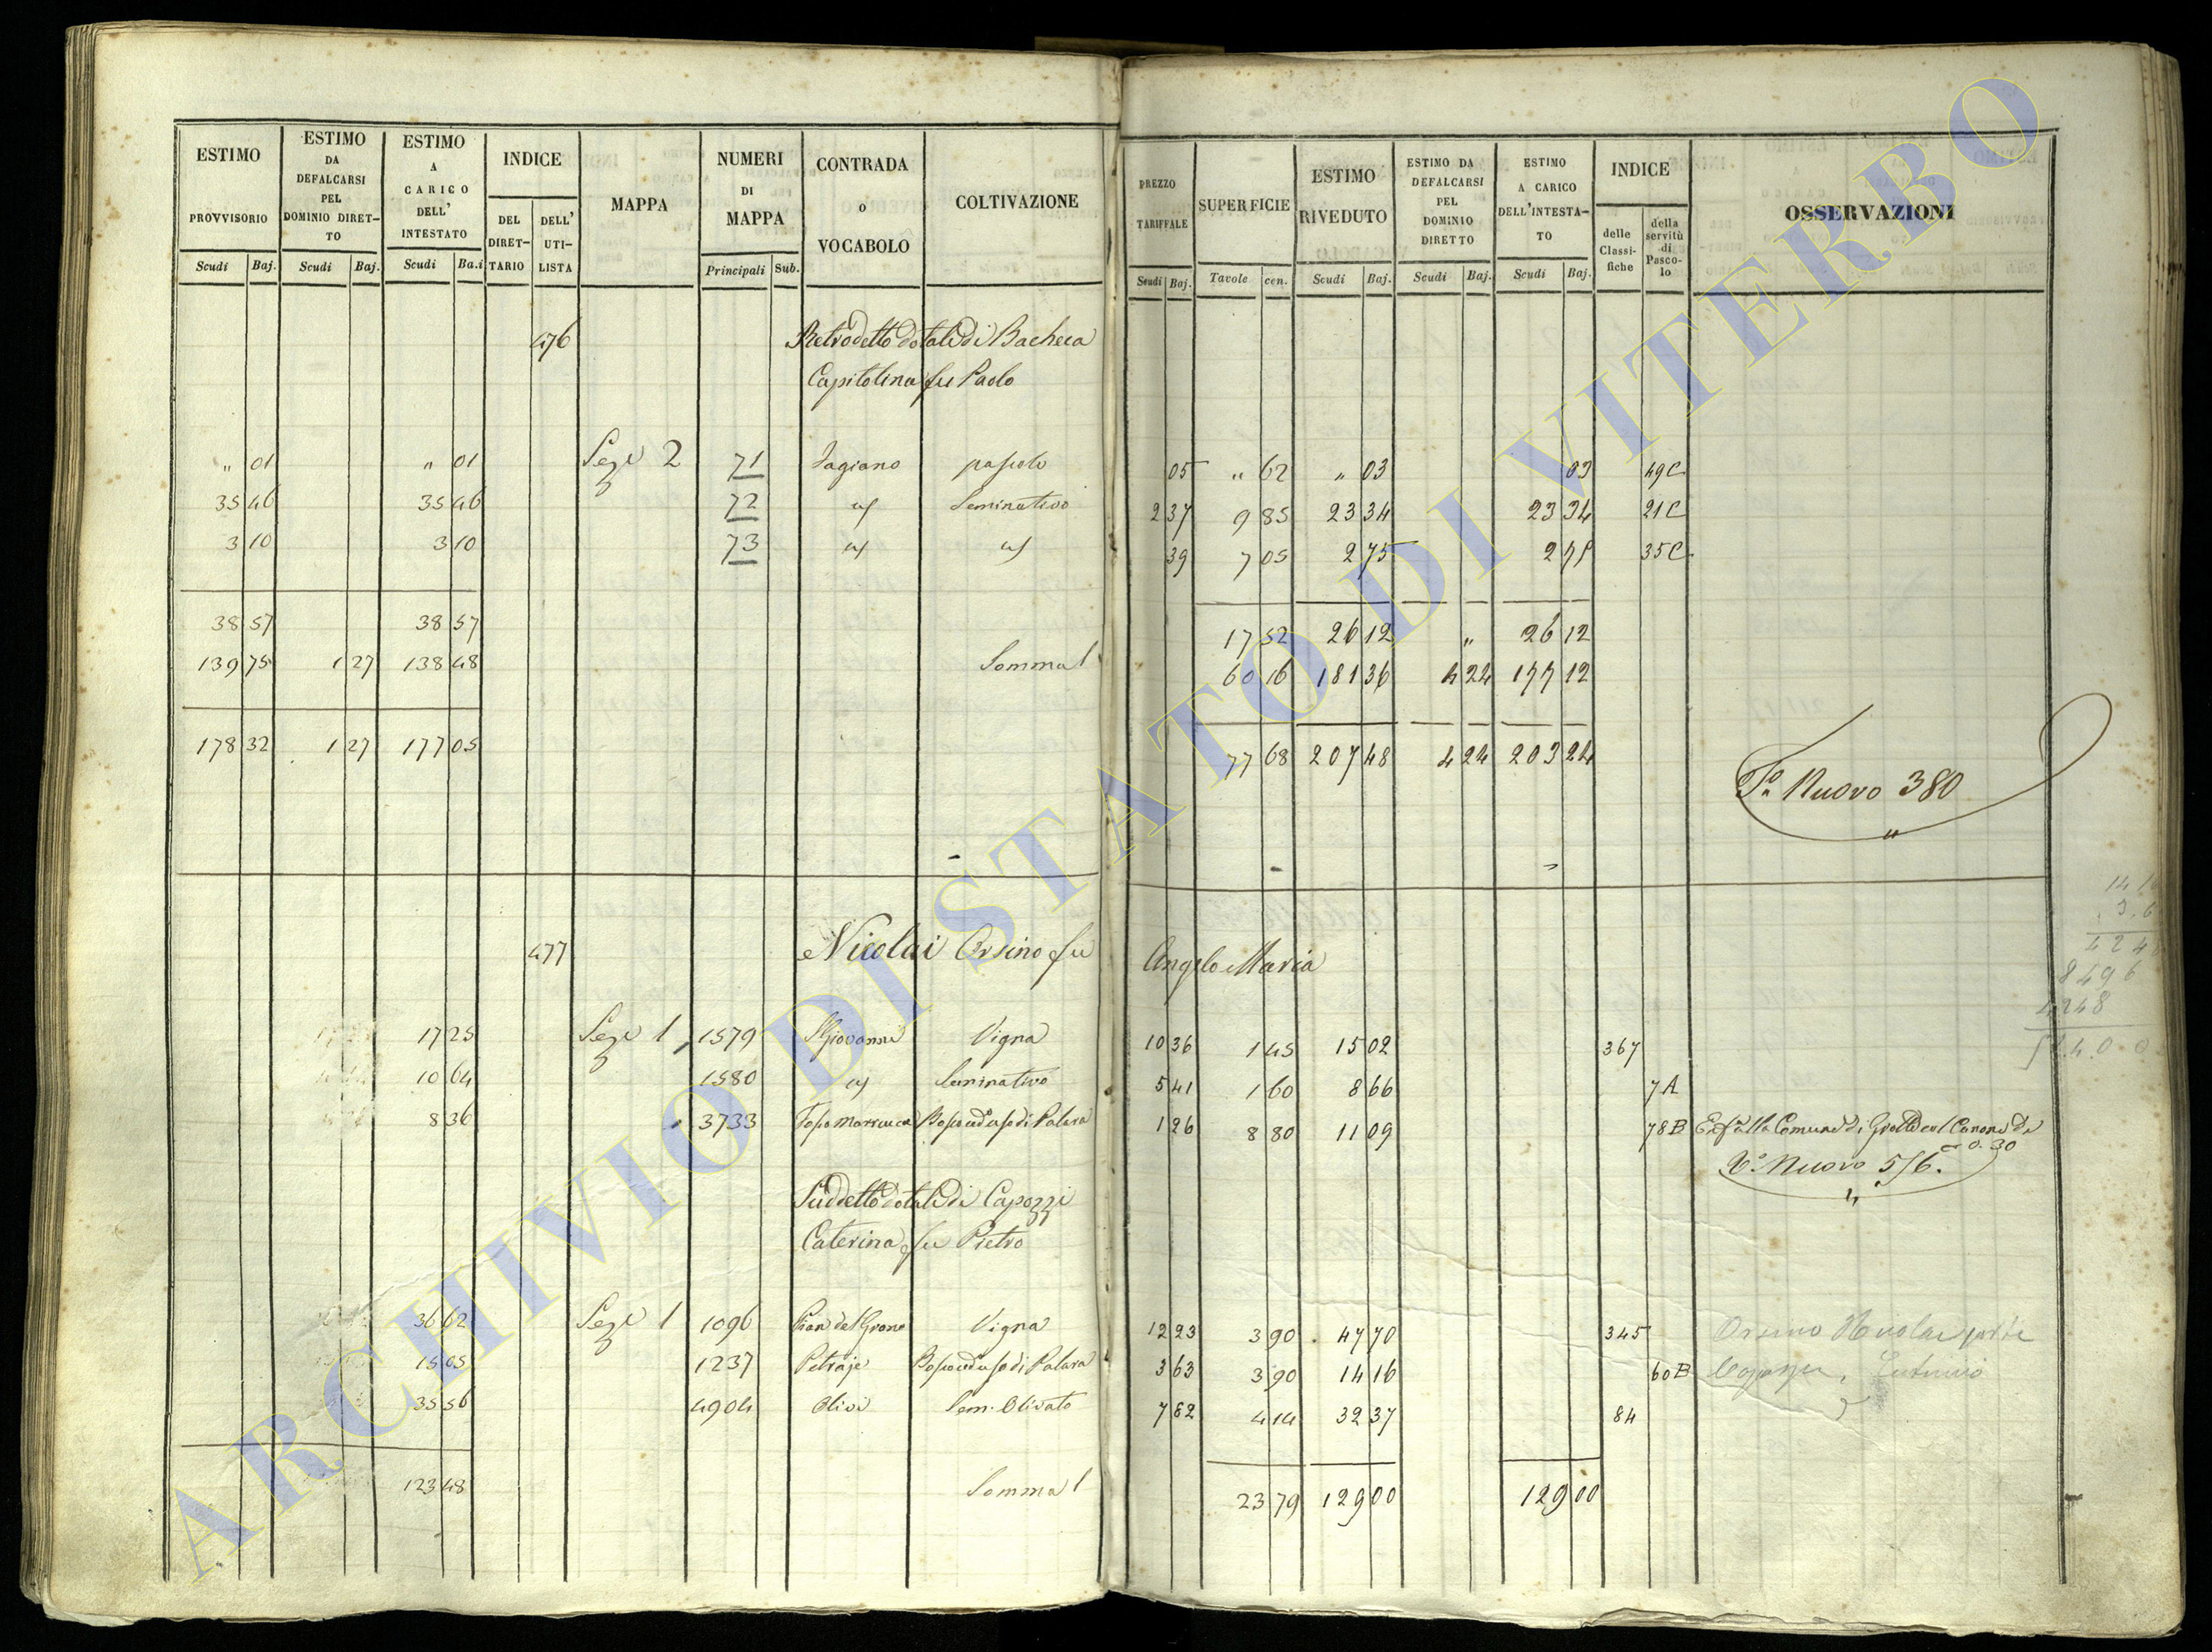 ESTIMO PROVVISORIO Scudi Baj.
ESTIMO DA DEFALCARSI PEL DOMINIO DIRETTO Scudi Baj.
ESTIMO A CARICO DELL' INTESTATO Scudi Ba.i
INDICE DEL DIRETTARIO DELL' UTILISTA
MAPPA
NUMERI DI MAPPA Principali Sub.
CONTRADA o VOCABOLO
COLTIVAZIONE
PREZZO TARIFFALE Scudi Baj.
SUPERFICIE Tavole cen.
ESTIMO RIVEDUTO Scudi Baj.
ESTIMO DA DEFALCARSI PEL DOMINIO DIRETTO Scudi Baj.
ESTIMO A CARICO DELL'INTESTATO Scudi Baj.
INDICE delle Classifiche della servitù di Pascolo
OSSERVAZIONI
476 Retrodetto dotale di Bacheca
Capitolina fu Paolo
" 01 " 01 Seze 2 71 Fagiano pascolo 05 " 62 " 03 03 49C
35 46 35 46 72 Seminativo 2 37 9 85 23 34 23 34 21C
3 10 3 10 73 39 7 05 2 75 2 75 35C
38 57 38 57 17 52 26 12 " 26 12
139 75 1 27 138 48 Somma 60 16 181 36 4 24 177 12
178 32 1 27 177 05 77 68 207 48 4 24 203 24
Fo. Nuovo 380
477 Nicolai Orsino fu Angelo Maria
17 25 Seze 1 1579 S Giovanni Vigna 10 36 1 45 15 02 367
10 64 1580 Seminativo 5 41 1 60 8 66 7A
8 36 3733 Bosco ced. uso di Palara 1 26 8 80 11 09 78B alla Comune di Grotte col Canone di
0.30
Nuovo 516.
Suddetto dotale di Capozzi
Caterina fu Pietro
36 62 Seze 1 1096 Pian del Grano Vigna 12 23 3 90 47 70 345 Orsino Nicolai
15 05 1237 Petraje Bosco ced. uso di Palara 3 63 3 90 14 16 60B
35 56 4904 Olivi Sem. Olivato 7 82 4 14 32 37 84
123 48 Somma 23 79 129 00 129 00
8496
4248
ARCHIVIO DI STATO DI VITERBO